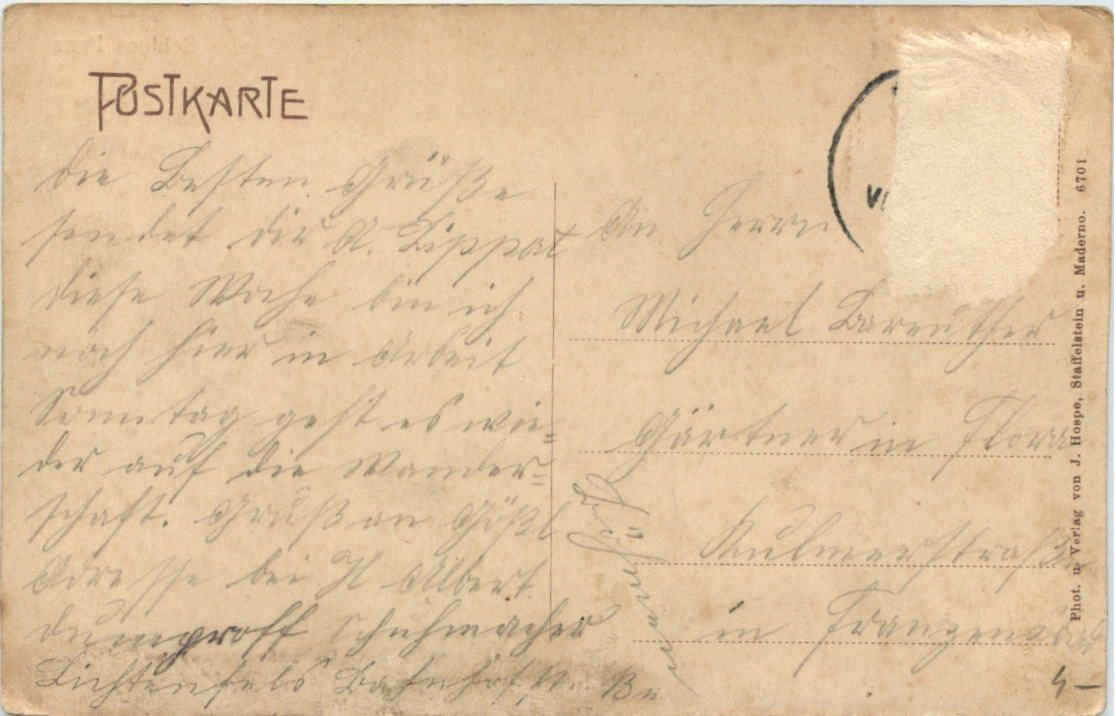 POSTKARTE
Die Besten Grüße
sendet dir A. Lippat
diese Woche bin ich
noch hier in Arbeit
Sonntag geht es wie=
der auf die Wander=
schaft. Gruß an Gößl
Adresse bei H Albert
Schuhmacher
Lichtenfels Bahnhofstr.
An Herrn
Michael Bareuther
Gärtner in Flora
Kulmerstraße
in Franzensbad
Phot. u. Verlag von J. Hospe, Staffelstein u. Maderno. 6701
4-